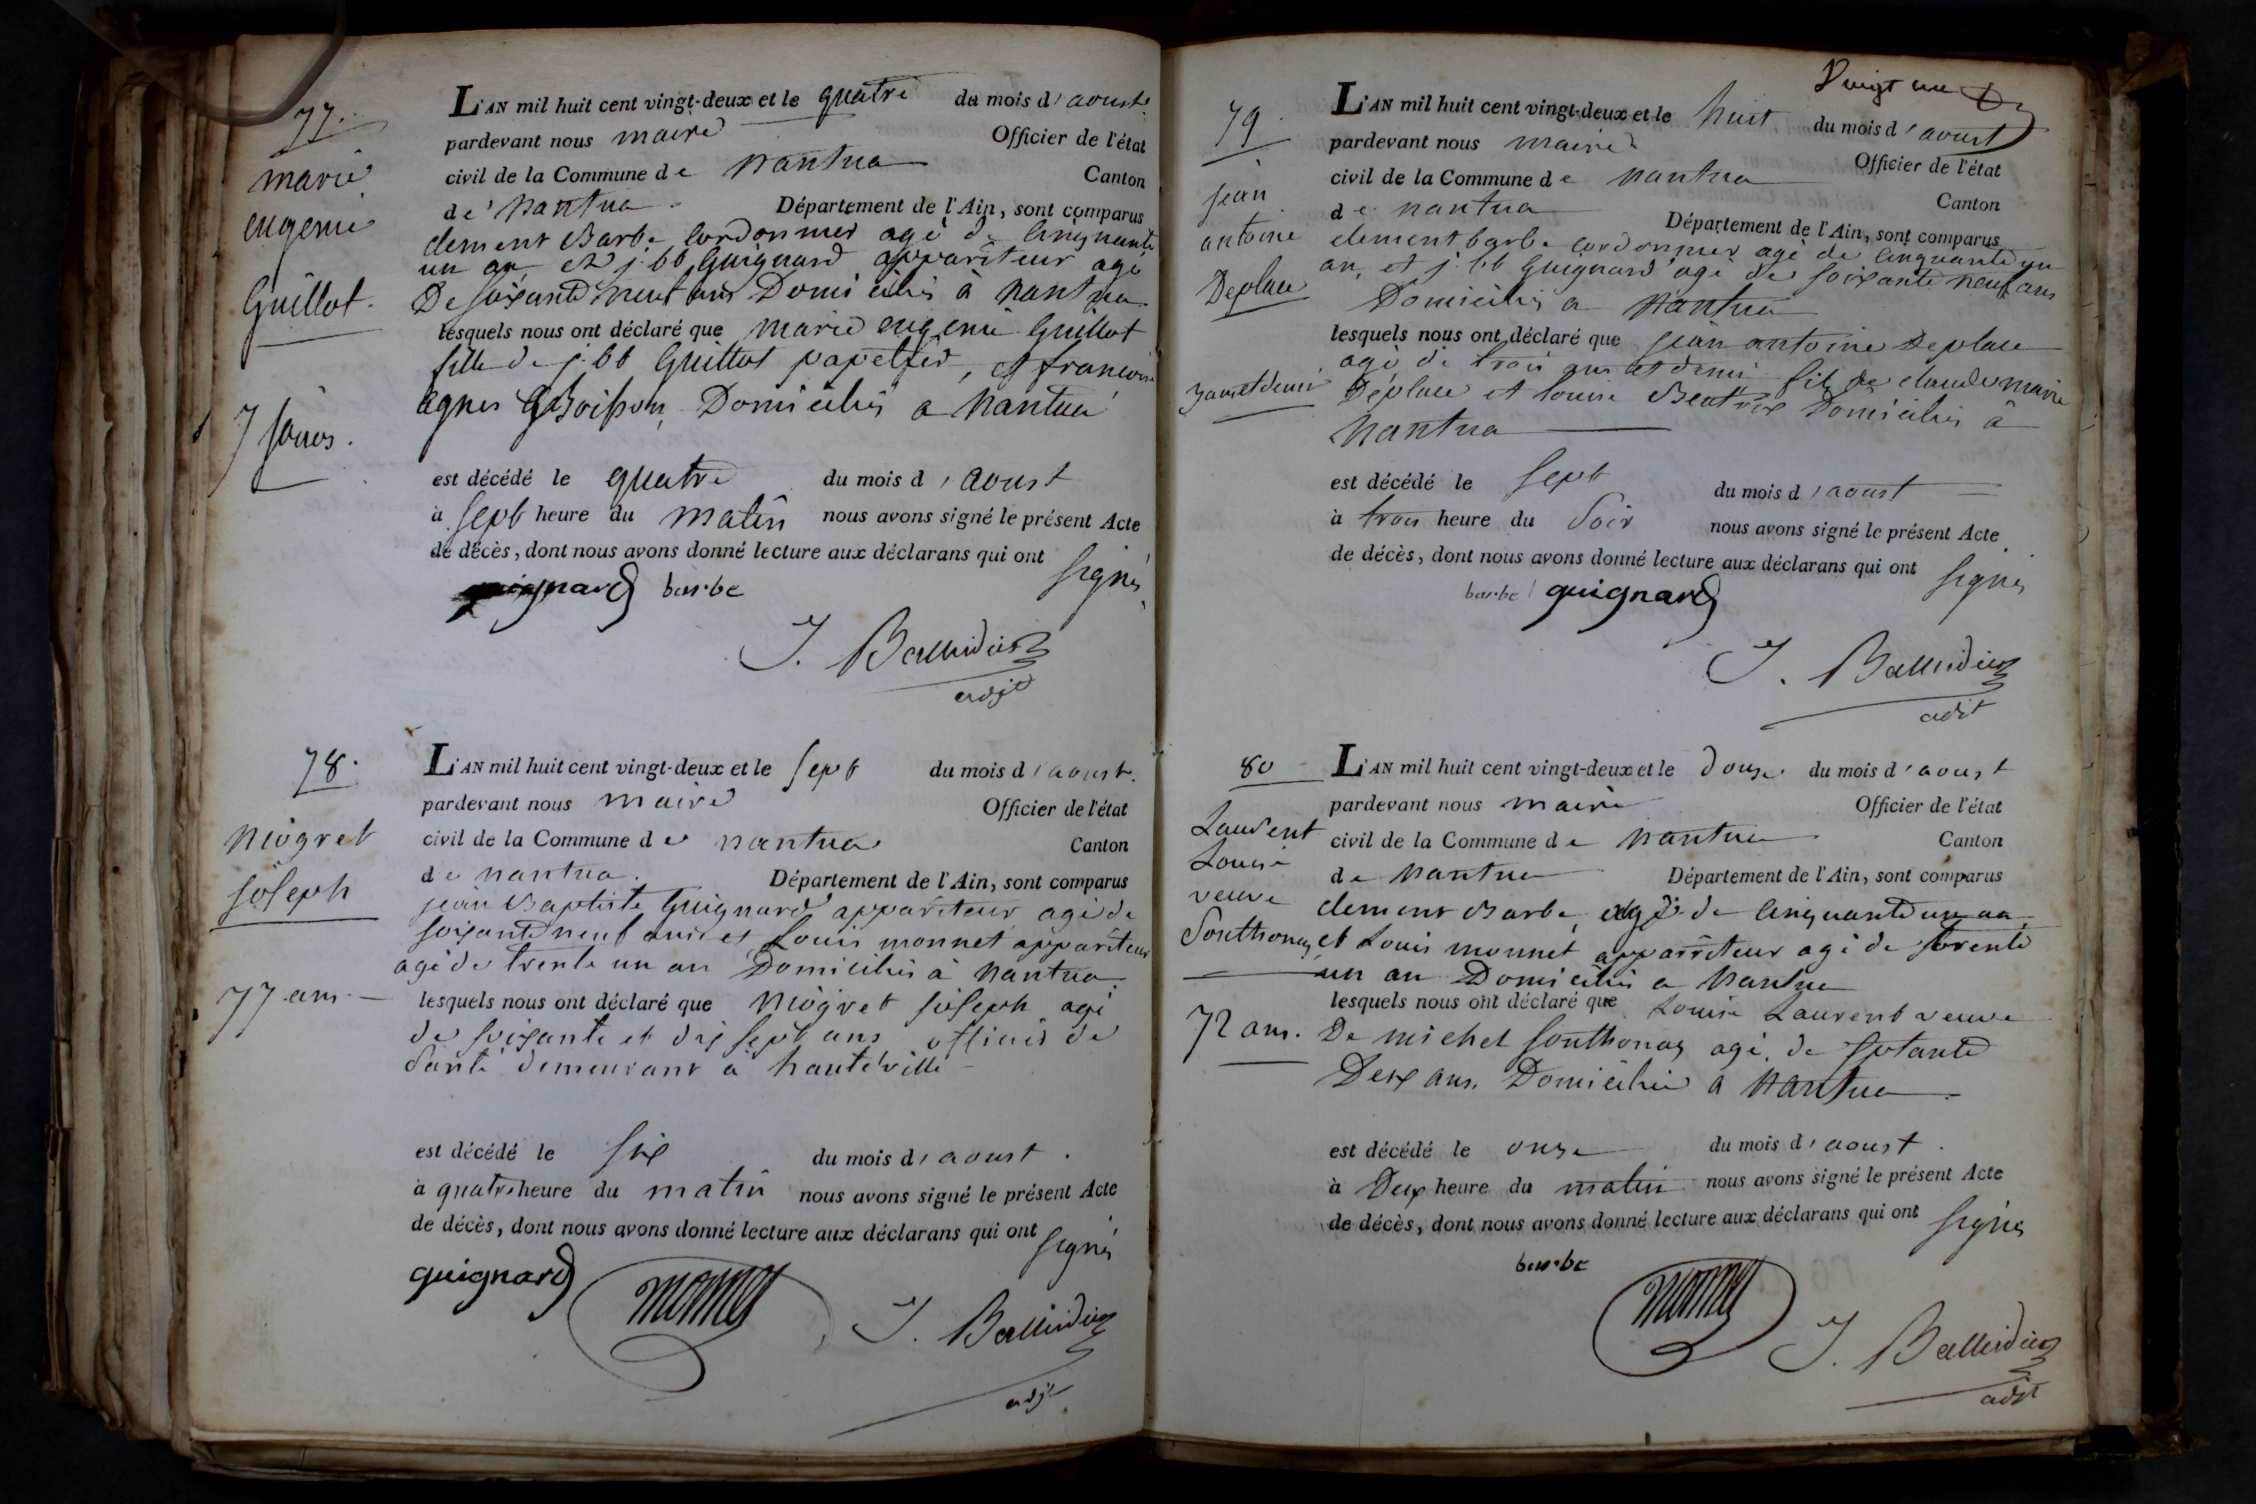 77.
marie
eugenie
Guillot.
7 jours.
L'AN mil huit cent vingt-deux et le quatre du mois d'aoust
pardevant nous maire Officier de l'état
civil de la Commune de nantua Canton
de nantua Département de l'Ain, sont comparus
clement Barbe cordonnier agé de cinquante
un an et j. bt Guignard appariteur agé
De soixante neuf ans Domiciliés à nantua
lesquels nous ont déclaré que marie eugenie Guillot
fille de j. bt Guillot papettier, et francoise
agnes Boisson Domiciliés a nantua
est décédé le quatre du mois d'aoust
à sept heure du matin nous avons signé le présent Acte
de décès, dont nous avons donné lecture aux déclarans qui ont signés
guignard barbe
J. Balleidier
adjt
78.
niogret
joseph
77 ans.
L'AN mil huit cent vingt-deux et le sept du mois d'aoust.
pardevant nous maire Officier de l'état
civil de la Commune de nantua Canton
de nantua. Département de l'Ain, sont comparus
jean Baptiste Guignard appariteur agé de
soixante neuf ans et Louis monnet appariteur
agé de trente un an Domiciliés à nantua
lesquels nous ont déclaré que niogret joseph agé
de soixante et dix sept ans officier de
santé demeurant à hauteville
est décédé le six du mois d'aoust.
à quatre heure du matin nous avons signé le présent Acte
de décès, dont nous avons donné lecture aux déclarans qui ont signés
guignard monnet J. Balleidier
adjt
Vingt un
79
jean
antoine
Deplace
3 ans et demi
L'AN mil huit cent vingt-deux et le huit du mois d'aoust
pardevant nous maire Officier de l'état
civil de la Commune de nantua Canton
de nantua Département de l'Ain, sont comparus
clement barbe cordonnier agé de cinquante un
an, et j. bt Guignard agé de soixante neuf ans
Domiciliés a nantua
lesquels nous ont déclaré que jean antoine Deplace
agé de trois ans et demi fils de claude marie
Deplace et louise Beatrix Domiciliés à
nantua
est décédé le sept du mois d'aoust
à trois heure du soir nous avons signé le présent Acte
de décès, dont nous avons donné lecture aux déclarans qui ont signés
barbe guignard
J. Balleidier
adjt
80
Laurent
Louise
veuve
Southonax
72 ans.
L'AN mil huit cent vingt-deux et le douze du mois d'aoust
pardevant nous maire Officier de l'état
civil de la Commune de nantua Canton
de nantua Département de l'Ain, sont comparus
clement Barbe agé de cinquante un an
et Louis monnet appariteur agé de trente
un an Domiciliés a nantua
lesquels nous ont déclaré que Louise Laurent veuve
De michel southonax agé de septante
Deux ans Domiciliée a nantua
est décédé le onze du mois d'aoust.
à Deux heure du matin nous avons signé le présent Acte
de décès, dont nous avons donné lecture aux déclarans qui ont signés
barbe
monnet J. Balleidier
adjt